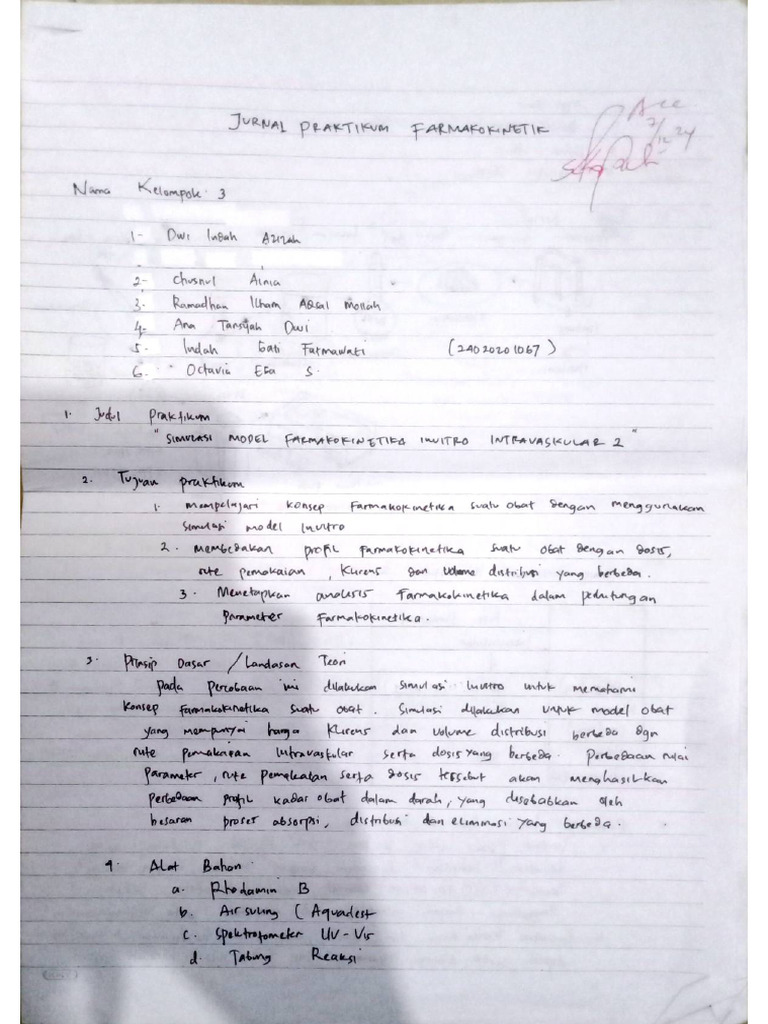 JURNAL PRAKTIKUM FARMAKOKINETIK
Acc
7/12 24
Nama Kelompok 3
1- Dwi Indah Azizah
2- Chusnul Ainia
3. Ramadhan Ilham Aqsal
4- Ana Tansyah Dwi
5. Indah Sati Farmawati (24020201067)
6. Octavia Eka S.
1. Judul praktikum
"SIMULASI MODEL FARMAKOKINETIKA INVITRO INTRAVASKULAR 2"
2. Tujuan praktikum
1. mempelajari konsep farmakokinetika suatu obat dengan menggunakan
simulasi model Invitro
2. membedakan profil farmakokinetika suatu obat dengan dosis,
rute pemakaian, Klirens dan volume distribusi yang berbeda.
3. Menetapkan analisis Farmakokinetika dalam perhitungan
parameter Farmakokinetika.
3. Prinsip Dasar / Landasan Teori
pada percobaan ini dilakukan simulasi Invitro untuk memahami
konsep farmakokinetika suatu obat. Simulasi dilakukan untuk model obat
yang mempunyai harga Klirens dan volume distribusi berbeda dgn
rute pemakaian Intravaskular serta dosis yang berbeda. Perbedaan nilai
parameter, rute pemakaian serta dosis tersebut akan menghasilkan
perbedaan profil kadar obat dalam darah, yang disebabkan oleh
besaran proses absorpsi, distribusi dan eliminasi yang berbeda.
4. Alat Bahan
a. Rhodamin B
b. Air suling (Aquadest
c. Spektrofometer UV-Vis
d. Tabung Reaksi